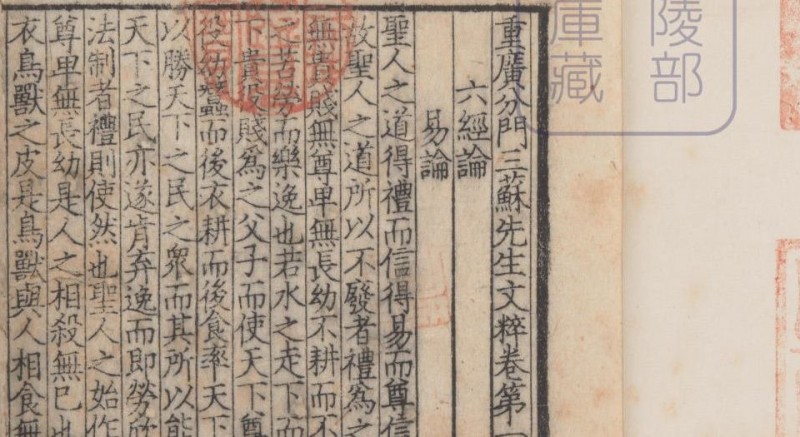 陵部
庫藏
重廣分門三蘇先生文粹卷第
六經論
易論
聖人之道得禮而信得易而尊信
故聖人之道所以不廢者禮爲之
無貴賤無尊卑無長幼不耕而不
之苦勞而樂逸也若水之走下而
下貴役賤爲之父子而使天下尊
役幼蠶而後衣耕而後食率天下
以勝天下之民之衆而其所以能
天下之民亦遂肯弃逸而即勞欣
法制者禮則使然也聖人之始作
尊卑無長幼是人之相殺無已也
衣鳥獸之皮是鳥獸與人相食無